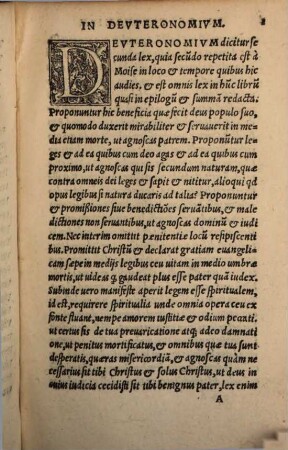 IN DEVTERONOMIVM.
DEVTERONOMIVM dicitur se
cunda lex, quia secūdo repetita est à
Moise in loco & tempore quibus hic
audies, & est omnis lex in hūc librū
quasi in epilogū & summā redacta.
Proponuntur hic beneficia quæ fecit deus populo suo,
& quomodo duxerit mirabiliter & seruauerit in me-
dia etiam morte, ut agnoscas patrem. Proponūtur le-
ges, & ad ea quibus cum deo agas & ad ea quibus cum
proximo, ut agnoscas qui sis secundum naturam, quæ
contra omneis dei leges & sapit & nititur, alioqui qd
opus legibus si natura ducaris ad talia? Proponuntur
& promissiones siue benedictiões seruātibus, & male
dictiones non seruantibus, ut agnoscas dominū & iudi-
cem. Nec interim omittit pœnitentiæ locū resipiscenti
bus. Promittit Christū & declarat gratiam euangeli-
cam sæpe in medijs legibus ceu uitam in medio umbræ
mortis, ut uideas q gaudeat plus esse pater quā iudex.
Subinde uero manifeste aperit legem esse spiritualem,
id est, requirere spiritualia unde omnia opera ceu ex
fonte fluant, nempe amorem iustitiæ & odium peccati.
ut certus sis de tua præuaricatione atq; adeo damnati
one, ut penitus mortificatus, & omnibus quæ tua sunt
desperatis, quæras misericordiā, & agnoscas quàm ne
cessarius sit tibi Christus & solus Christus, ut deus in
cuius iudicia cecidisti sit tibi benignus pater, lex enim
A